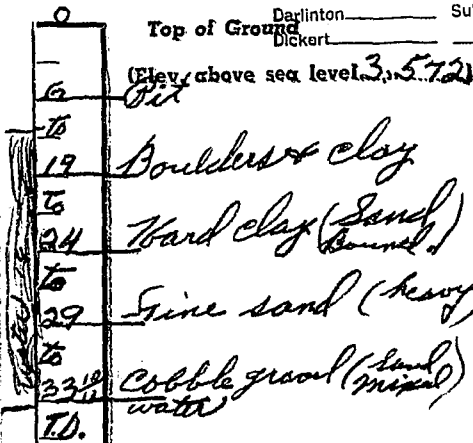 0
Darlinton Su
Top of Ground
Dickert
(Elev. above sea level 3,572)
6 Pit
to
19 Boulders & clay
to
24 Hard clay (Sand
Bound.)
to
29 Fine sand (heavy)
to
33 10/12 Cobble gravel (Sand
mixed
water
T.D.